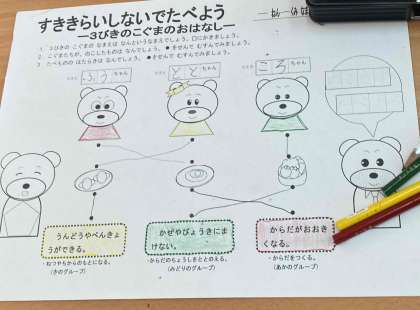 すききらいしないでたべよう
―3びきのこぐまのおはなし―
1. 3びきの こぐまの なまえは なんというなまえでしょう。□にかきましょう。
2. こぐまたちが、のこしたものは なんでしょう。●をせんで むすんでみましょう。
3. たべものの はたらきは なんでしょう。●をせんで むすんでみましょう。
ふう ちゃん
とと ちゃん
ころ ちゃん
うんどうやべんきょうができる。
かぜやびょうきにまけない。
からだがおおきくなる。
・ねつやちからのもとになる。
(きのグループ)
・からだのちょうしをととのえる。
(みどりのグループ)
・からだをつくる。
(あかのグループ)